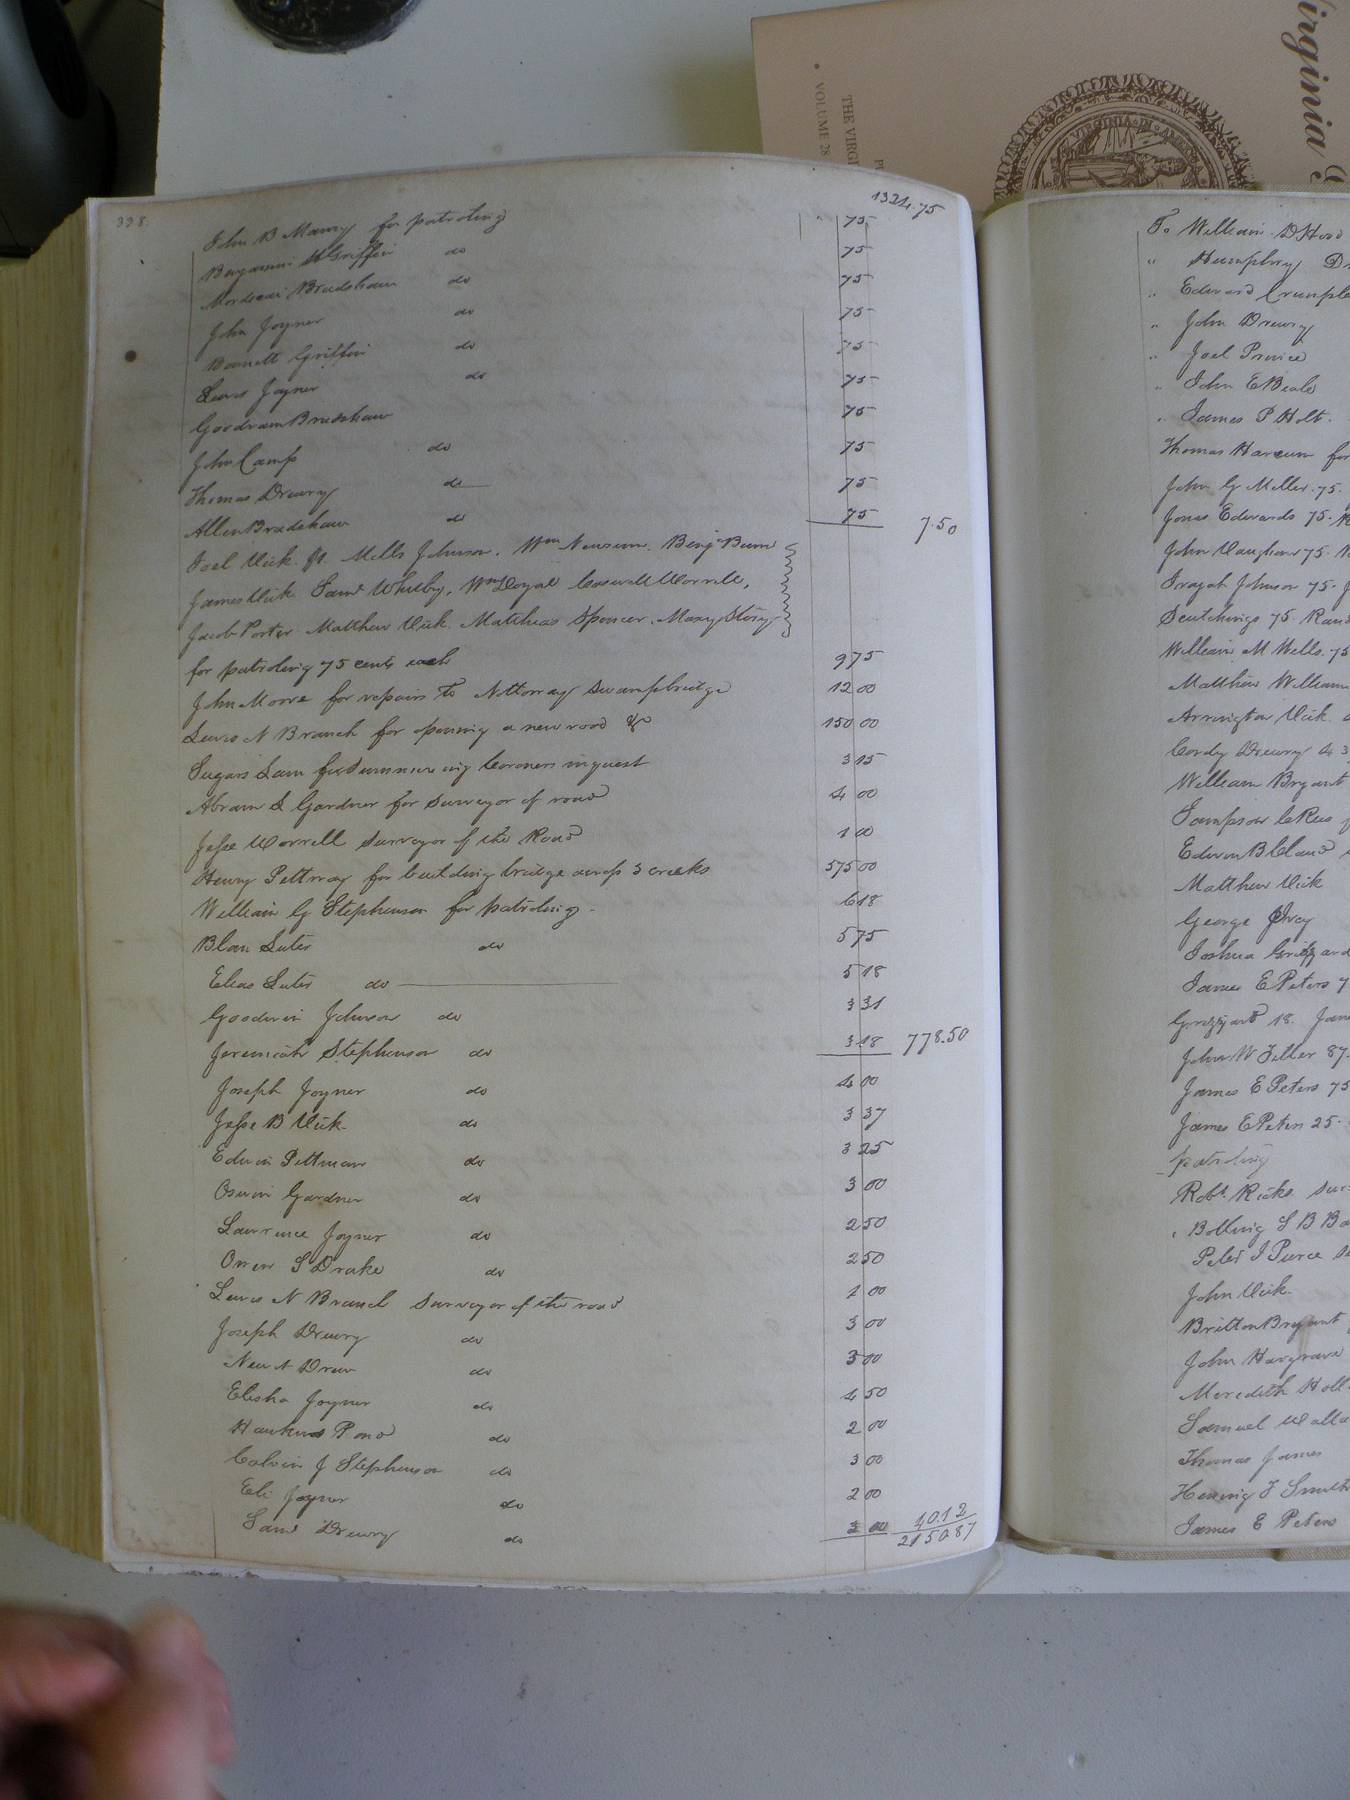 Virginia
THE VIRGI
VOLUME 28
VIRGINIA IN
338.
1324.75
John B Maury for patroling " 75
Benjamin W Griffin do 75
Mordecai Bradshaw do 75
John Joyner do 75
Barnett Griffin do 75
Lewis Joyner do 75
Goodram Bradshaw 75
John Camp do 75
Thomas Drewry do 75
Allen Bradshaw do 75 7.50
Joel Vick. Jr. Mills Johnson. Wm Newsum. Benjn Bunn
James Vick Saml Whitby, Wm Doyal Coswell Worrell,
Jacob Porter Matthew Vick. Matthias Spencer. Mary Story
for patroling 75 cents each 9 75
John Moore for repairs to Nottoway Swamp bridge 12 00
Lewis N Branch for opening a new road &c 150 00
Sugars Lain for Summoning Coroners inquest 3 15
Abram S Gardner for Surveyor of road 4 00
Jesse Worrell Surveyor of the Road 1 00
Henry Pettway for building bridge across 3 creeks 575 00
William G Stephenson for patroling. 6 18
Blan Luter do 5 75
Elias Luter do 5 18
Goodwin Johnson do 3 31
Jeremiah Stephenson do 3 18 778.50
Joseph Joyner do 4 00
Jesse B Vick do 3 37
Edwin Pittman do 3 25
Oswin Gardner do 3 00
Lawrence Joyner do 2 50
Owen S Drake do 2 50
Lewis N Branch Surveyor of the road 1 00
Joseph Drewry do 3 00
New A Drew do 3 00
Elisha Joyner do 4 50
Hawkins Pond do 2 00
Calvin J Stephenson do 3 00
Eli Joyner do 2 00
Saml Drewry do 3 00 40.12
2150.87
To William D Hood
" Humphrey
" Edward
" John Drewry
" Joel Prince
" John E Beale
" James P Holt.
Thomas Harcum for
John G Miller. 75.
Jones Edwards 75.
John Vaughan 75.
Johnson 75.
75.
William M Wells. 75
Matthew William
Arrington Vick.
Cordy Drewry
William Bryant
Sampson
Edwin B Claud
Matthew Vick
George Ivey
Joshua Grizzard
James E Peters 7
Grizzard 18. Jam
John W 87.
James E Peters 75
James E Peters 25.
patroling
Robt. Ricks Sur
Bolling
Peter J Pierce
John Vick.
Britton Bryant
John Hargrave
Meredith Holl
Samuel Walla
Thomas James
Henning T Smith
James E Peters